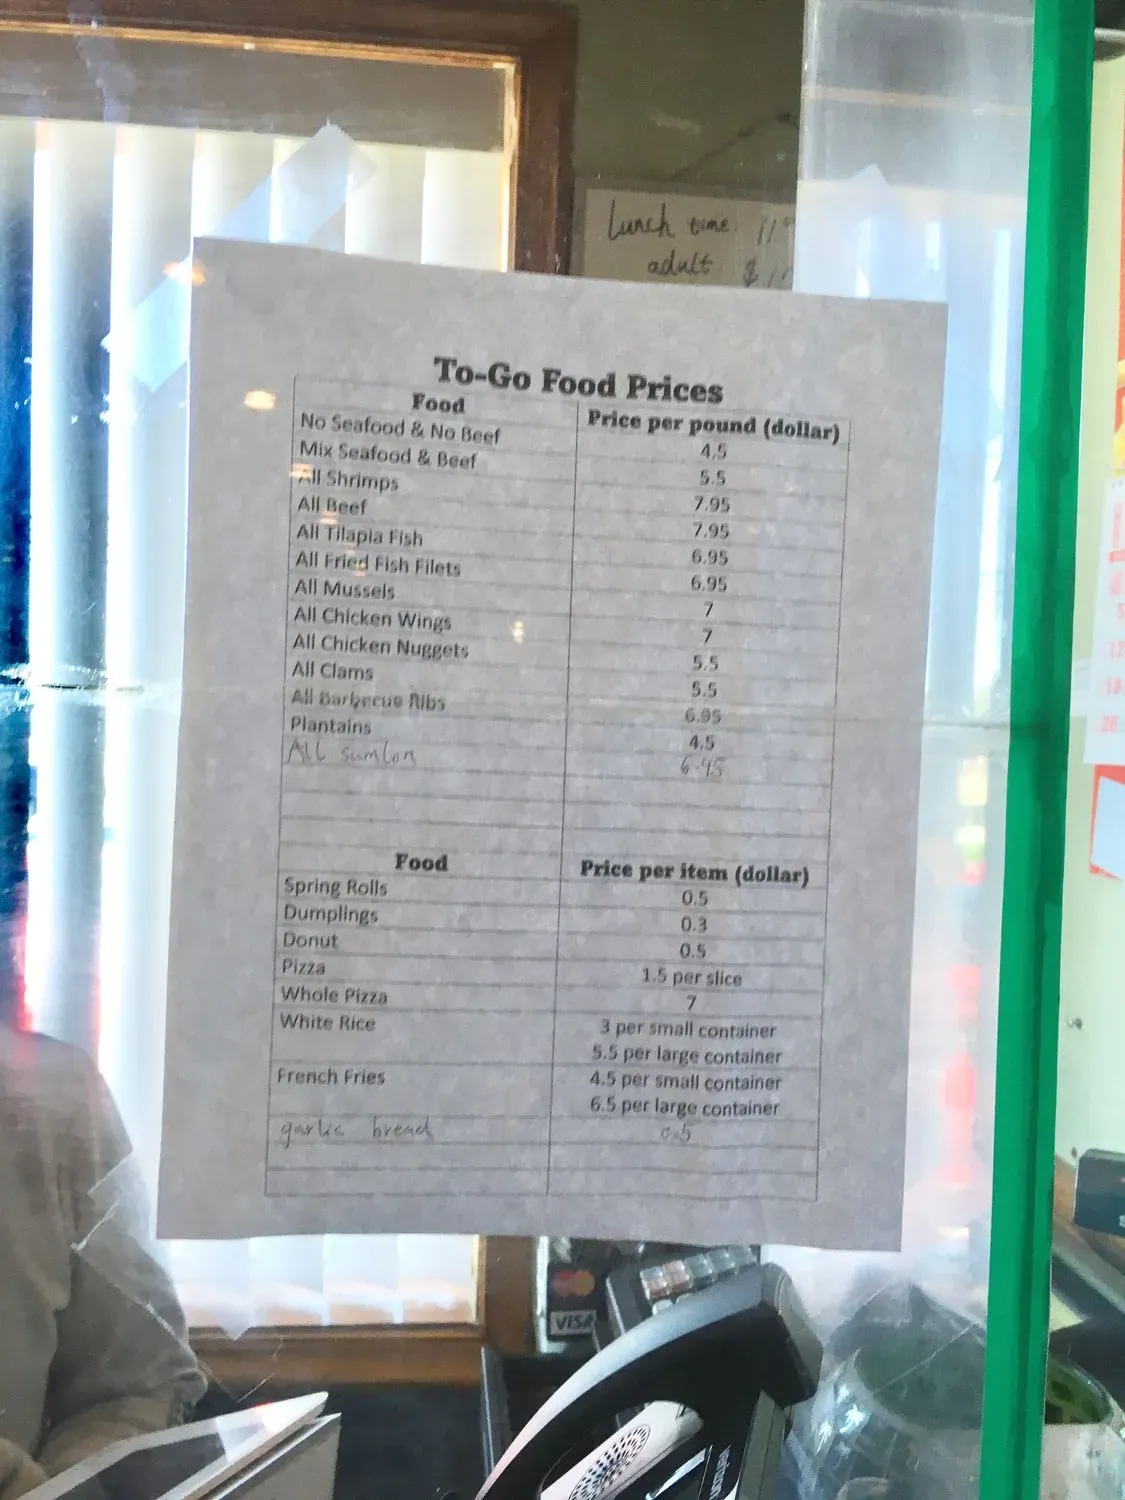 Lunch time
adult $
To-Go Food Prices
Food Price per pound (dollar)
No Seafood & No Beef 4.5
Mix Seafood & Beef 5.5
All Shrimps 7.95
All Beef 7.95
All Tilapia Fish 6.95
All Fried Fish Filets 6.95
All Mussels 7
All Chicken Wings 7
All Chicken Nuggets 5.5
All Clams 5.5
All Barbecue Ribs 6.95
Plantains 4.5
All sumlon 6.95
Food Price per item (dollar)
Spring Rolls 0.5
Dumplings 0.3
Donut 0.5
Pizza 1.5 per slice
Whole Pizza 7
White Rice 3 per small container
5.5 per large container
French Fries 4.5 per small container
6.5 per large container
garlic bread 0.5
VISA
verizon